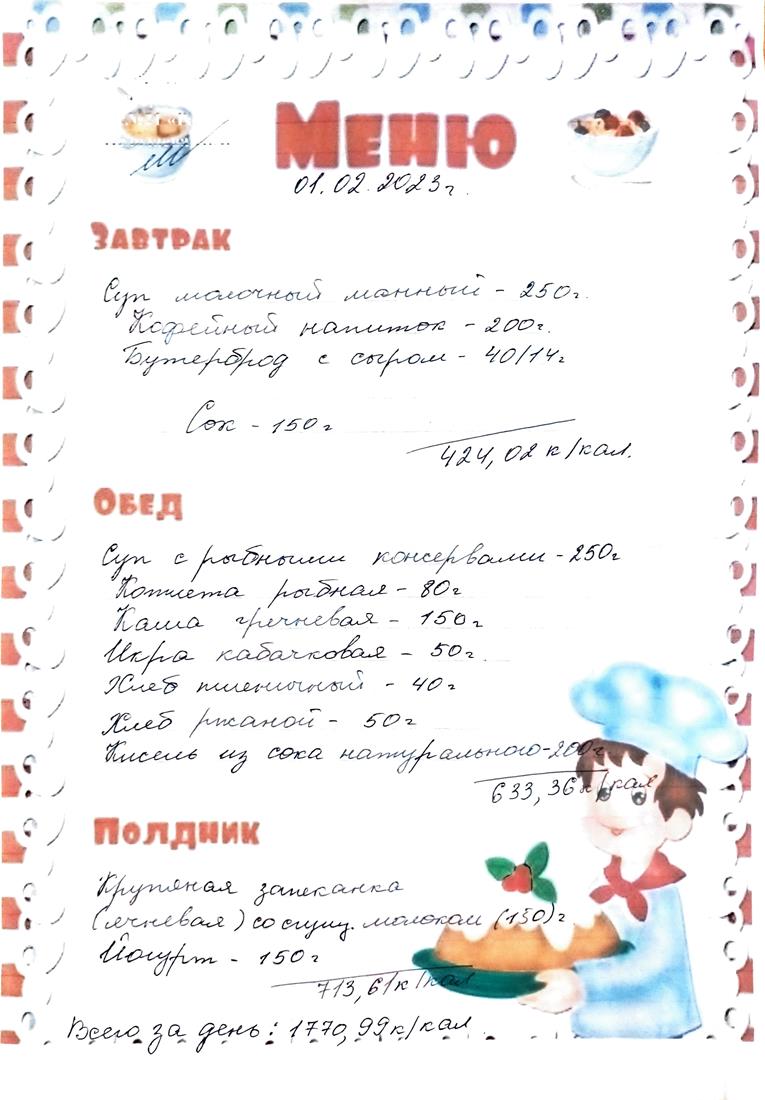 Меню
01.02.2023г.
Завтрак
Суп молочный манный - 250г.
Кофейный напиток - 200г.
Бутерброд с сыром - 40/14г
Сок - 150г
424,02 к/кал.
Обед
Суп с рыбными консервами - 250г
Котлета рыбная - 80г
Каша гречневая - 150г
Икра кабачковая - 50г.
Хлеб пшеничный - 40г
Хлеб ржаной - 50г
Кисель из сока натурального - 200г
633,36к/кал
Полдник
Крупяная запеканка
(ячневая) со сгущ. молоком (150)г
Йогурт - 150г
713,61к/кал
Всего за день: 1770,99к/кал.